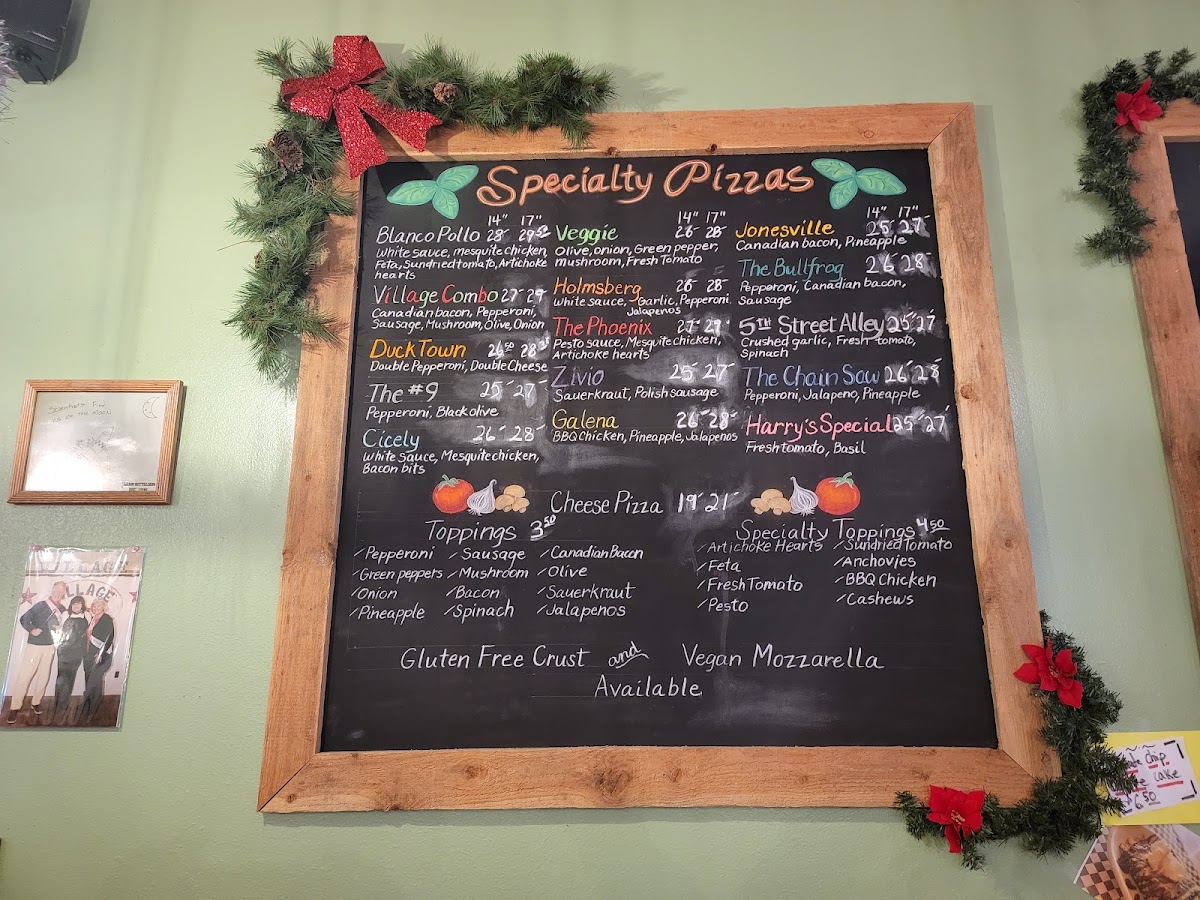 Specialty Pizzas
14" 17"
Blanco Pollo 28- 2950
White sauce, mesquite chicken,
Feta, Sundried tomato, Artichoke
hearts
Village Combo 27- 29
Canadian bacon, Pepperoni,
Sausage, Mushroom, Olive, Onion
Duck Town 2650 28
Double Pepperoni, Double Cheese
The #9 25- 27-
Pepperoni, Black olive
Cicely 26- 28-
White Sauce, Mesquite chicken,
Bacon bits
14" 17"
Veggie 26- 28-
Olive, onion, Green pepper,
mushroom, Fresh Tomato
Holmsberg 26- 28-
White sauce, Garlic, Pepperoni.
Jalapenos
The Phoenix 27- 29-
Pesto sauce, Mesquite chicken,
Artichoke hearts
Zivio 25- 27-
Sauerkraut, Polish sausage
Galena 26- 28-
BBQ Chicken, Pineapple, Jalapenos
14" 17"
Jonesville 25- 27-
Canadian bacon, Pineapple
The Bullfrog 26- 28-
Pepperoni, Canadian bacon,
Sausage
5TH Street Alley 25- 27
Crushed garlic, Fresh tomato,
Spinach
The Chain Saw 26- 28
Pepperoni, Jalapeno, Pineapple
Harry's Special 25- 27
Fresh tomato, Basil
Cheese Pizza 19- 21-
Toppings 350
✓Pepperoni ✓Sausage ✓Canadian Bacon
✓Green peppers ✓Mushroom ✓Olive
✓Onion ✓Bacon ✓Sauerkraut
✓Pineapple ✓Spinach ✓Jalapenos
Specialty Toppings 450
✓Artichoke Hearts ✓Sundried Tomato
✓Feta ✓Anchovies
✓Fresh Tomato ✓BBQ Chicken
✓Pesto ✓Cashews
Gluten Free Crust and Vegan Mozzarella
Available
VILLAGE
chip
cake
650